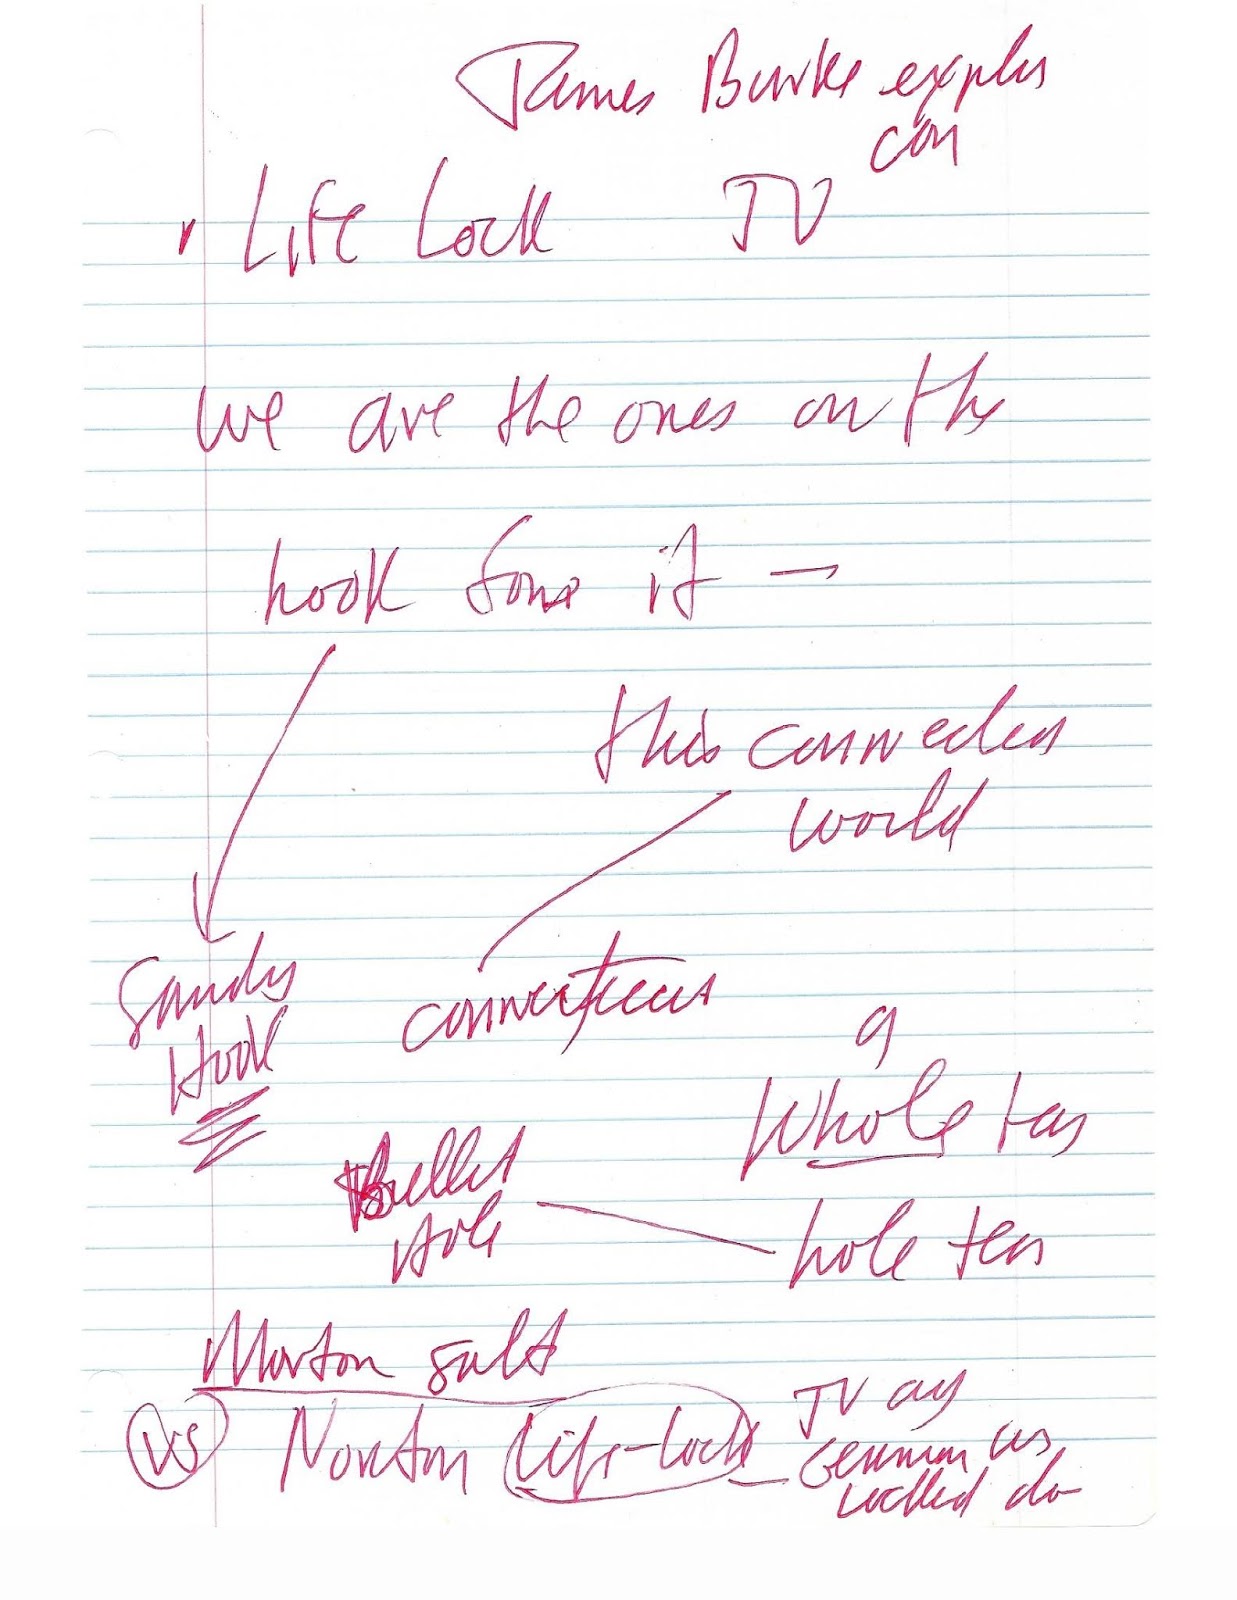 James Burke
con
Life Lock TV
we are the ones on the
hook for it —
this connected
world
Sandy
Hook
connecticut
a
Whole
Bullet
Hole
hole
Morton salt
VS Norton Life-lock
TV
German